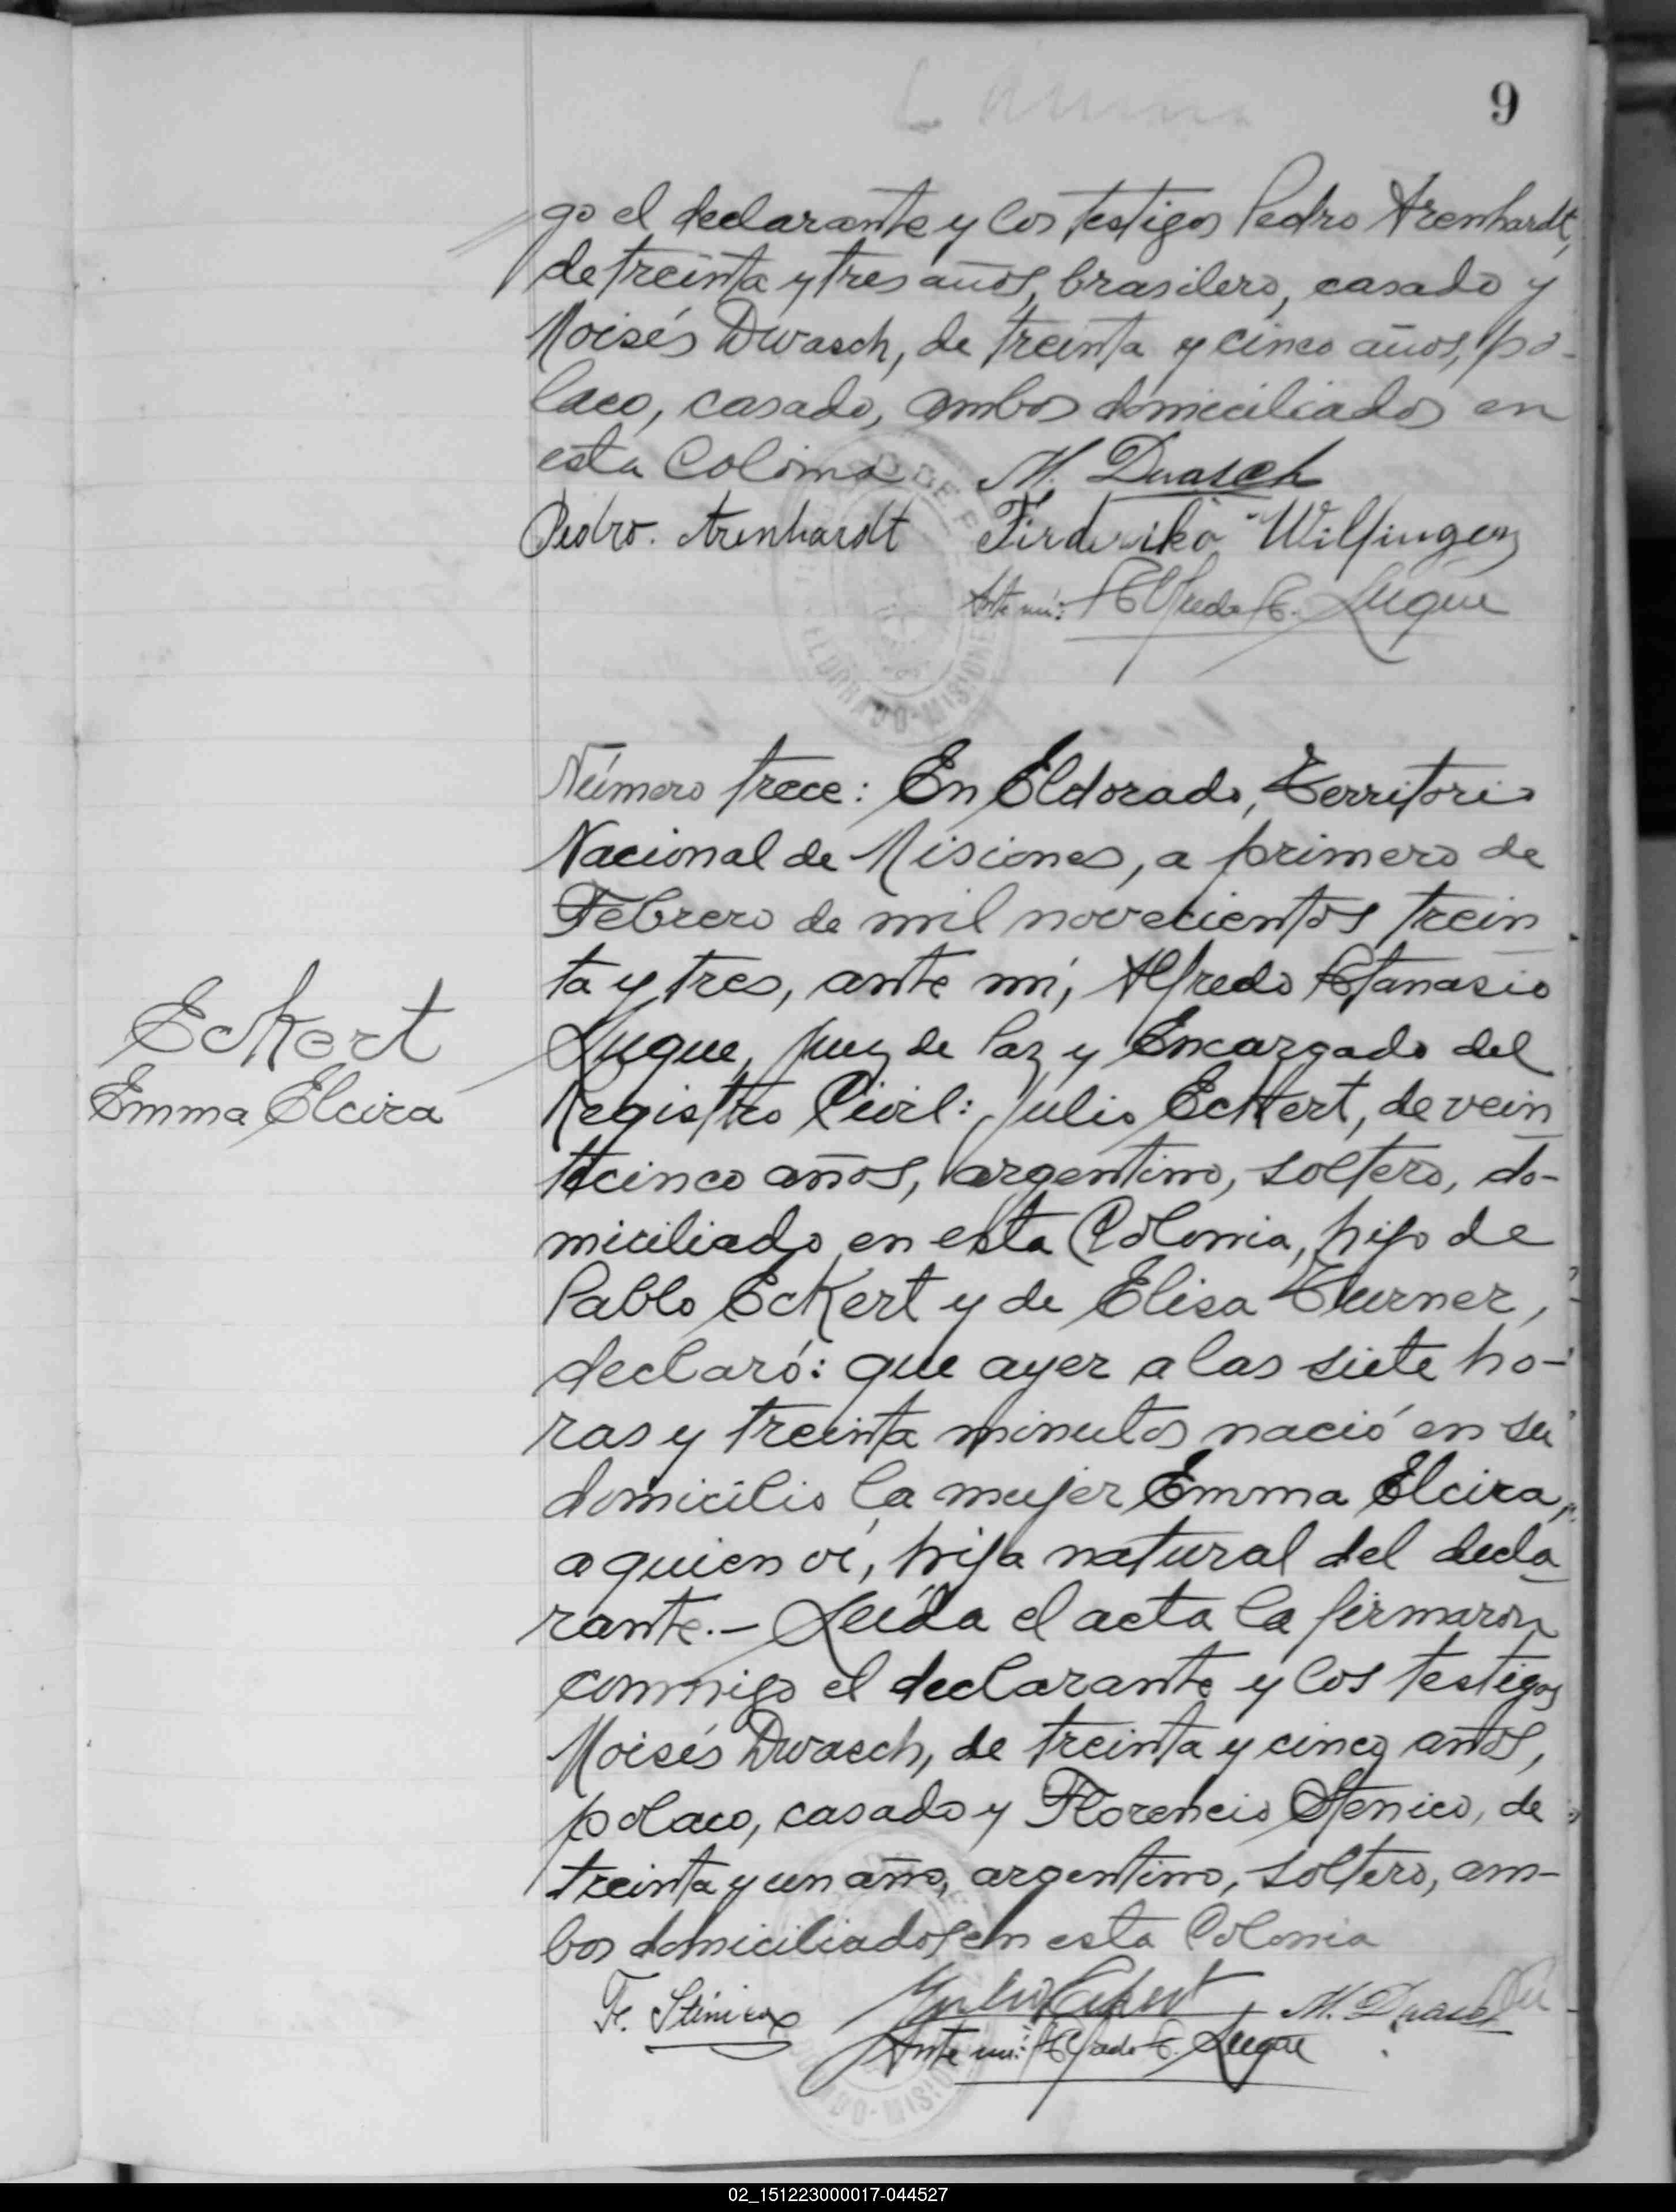 9
go el declarante y los testigos Pedro Arenhardt,
de treinta y tres años, brasilero, casado y
Moisés Dwasch, de treinta y cinco años, po-
laco, casado, ambos domiciliados en
esta Colonia M. Dwasch
Pedro. Arenhardt Firderiko Wilfinger
Ante mí: Alfredo A. Luque
ELDORADO-MISIONES
Número trece: En Eldorado, Territorio
Nacional de Misiones, a primero de
Febrero de mil novecientos trein
ta y tres, ante mí, Alfredo Atanasio
Luque, Juez de Paz y Encargado del
Eckert
Emma Elcira
Registro Civil: Julio Eckert, de vein
ticinco años, argentino, soltero, do-
miciliado en esta Colonia, hijo de
Pablo Eckert y de Elisa Turner,
declaró: que ayer a las siete ho-
ras y treinta minutos nació en su
domicilio la mujer Emma Elcira,
a quien ví, hija natural del decla
rante.- Leída el acta la firmaron
conmigo el declarante y los testigos
Moisés Dwasch, de treinta y cinco años,
polaco, casado y Florencio Stenico, de
treinta y un año, argentino, soltero, am-
bos domiciliados en esta Colonia
F. Stenico Julio Eckert M. Dwasch
Ante mí: Alfredo A. Luque
02_151223000017-044527